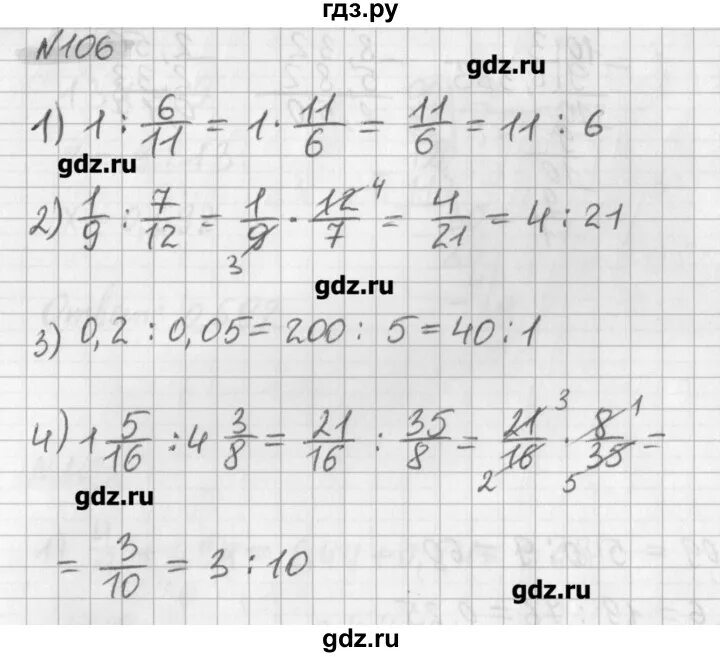 гдз.ру
№106
gdz.ru
1) 1 : 6/11 = 1 · 11/6 = 11/6 = 11 : 6
gdz.ru
2) 1/9 : 7/12 = 1/9 3 · 12/7 4 = 4/21 = 4 : 21
gdz.ru
3) 0,2 : 0,05 = 200 : 5 = 40 : 1
4) 1 5/16 : 4 3/8 = 21/16 : 35/8 = 21/16 3 2 · 8/35 1 5 =
gdz.ru
= 3/10 = 3 : 10
gdz.ru
gdz.ru